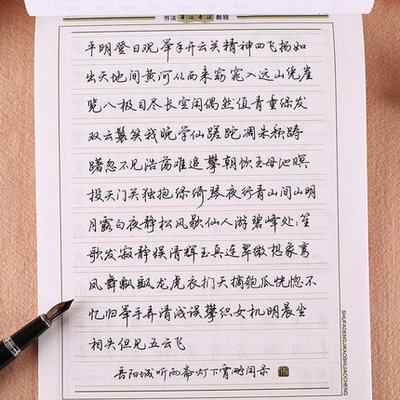 书法等级考试教程
平明登日观举手开云关精神四飞扬如
出天地间黄河从西来窈窕入远山凭崖
览八极目尽长空闲偶然值青童绿发
双云鬟笑我晚学仙蹉跎凋朱颜踌
躇忽不见浩荡难追攀朝饮王母池暝
投天门关独抱绿绮琴夜行青山间山明
月露白夜静松风歇仙人游碧峰处:笙
歌发寂静娱清辉玉真连翠微想象鸾
凤舞飘飖龙虎衣扪天摘匏瓜恍惚不
忆归举手弄清浅误攀织女机明晨坐
相失但见五云飞
阳城听雨斋灯下霄鹏闲录
SHUFADENGJIKAOSHIJIAOCHENG